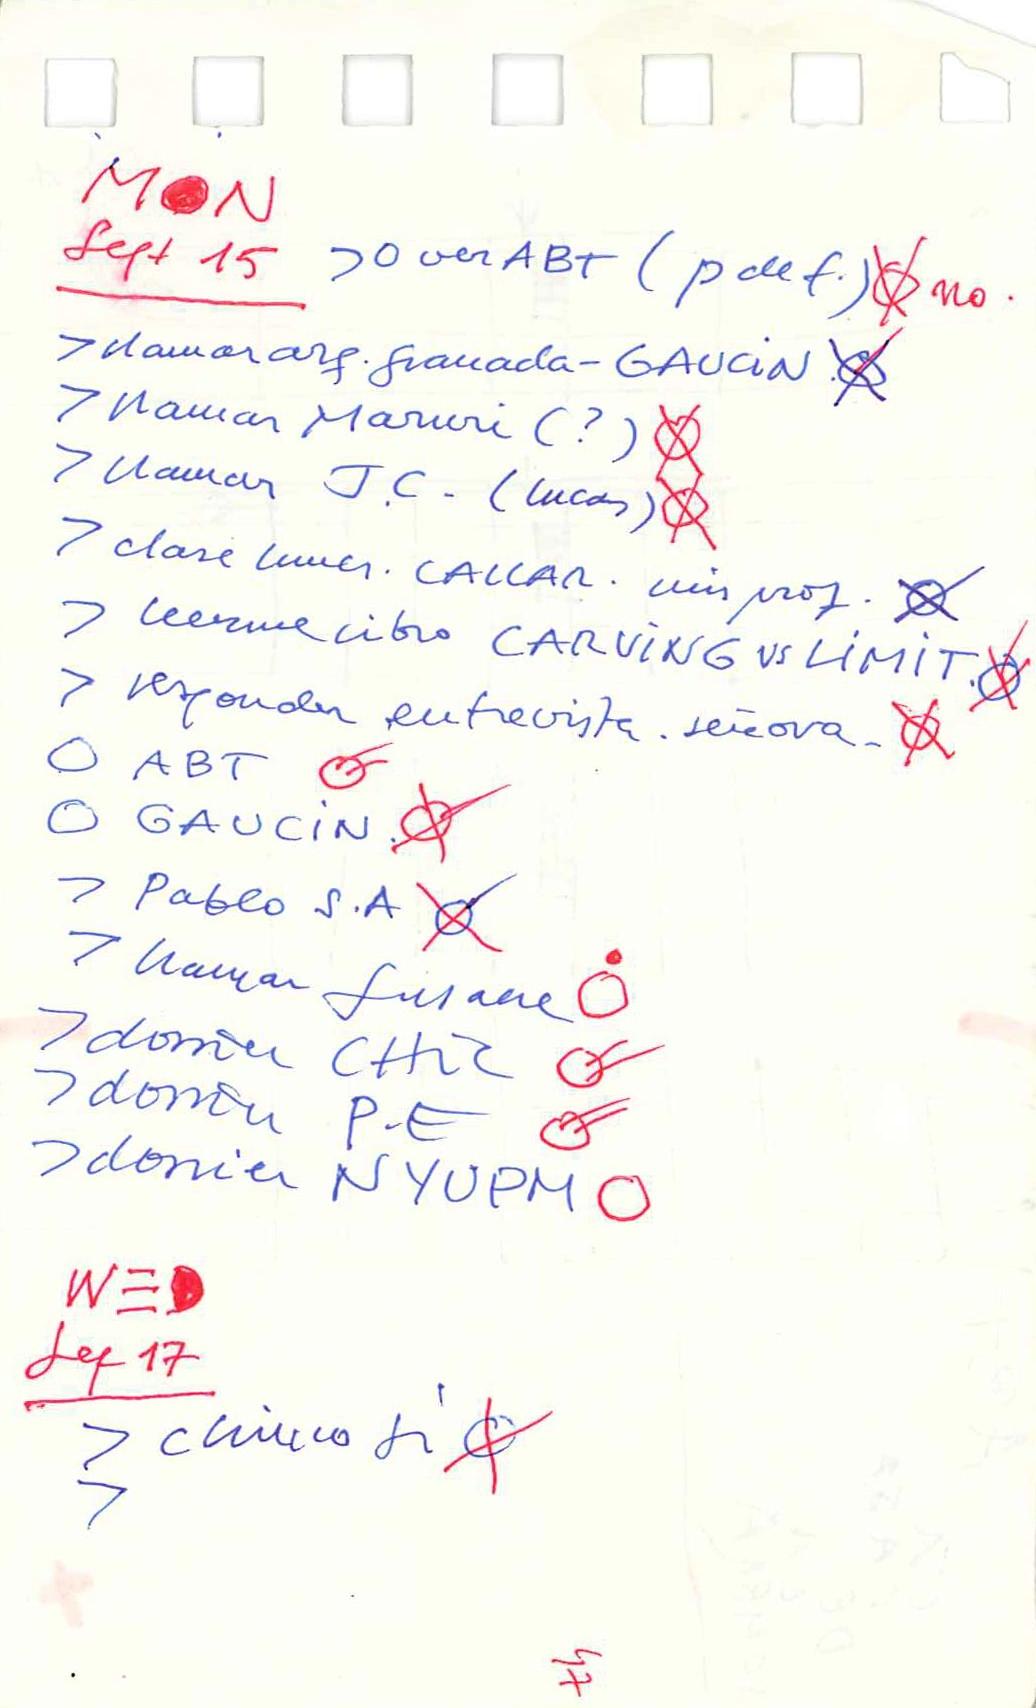 MON
Sept 15 > O ver ABT (p def.) no.
> llamar arq. granada - GAUCiN.
> llamar Maruri (?)
> llamar J.C. - (lucas)
> clase CALLAR. mis prof.
> leerme libro CARViNG vs LiMiT.
> responder entrevista. señora -
O ABT
O GAUCiN.
> Pablo S.A
> llamar Susane
> dossier CHiC
> dossier P.E
> dossier NYUPM
WED
Sep 17
> chino si
>
47